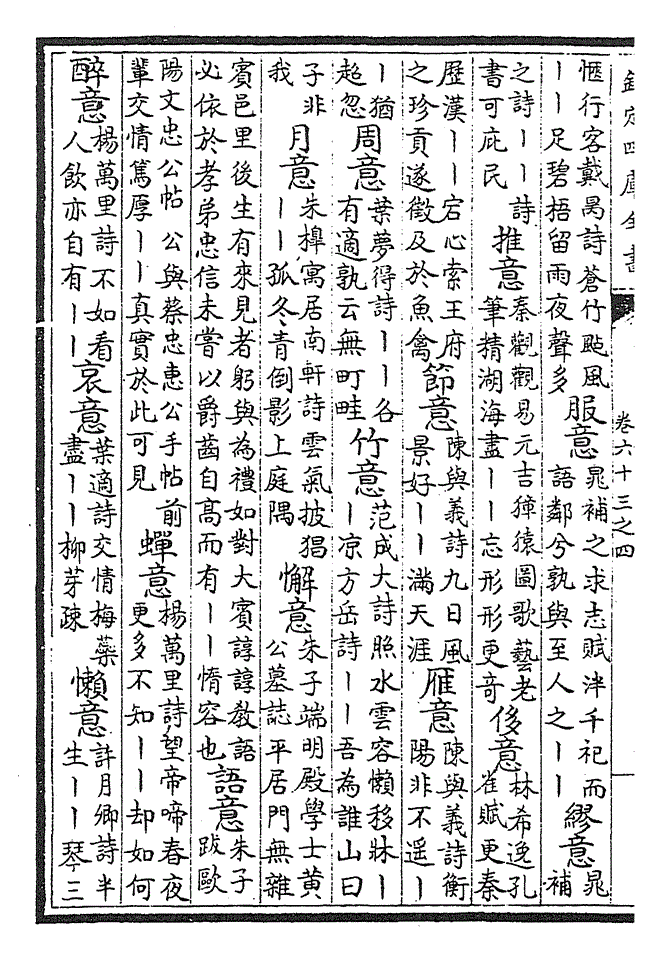 欽定四庫全書
卷六十三之四
愜行客戴昺詩蒼竹颭風
丨丨足碧梧留雨夜聲多
服意
晁補之求志賦泮千祀而
語鄰兮孰與至人之丨丨
繆意
晁
補
之詩丨丨詩
書可庇民
推意
秦觀觀易元吉獐猿圖歌藝老
筆精湖海盡丨丨忘形形更奇
侈意
林希逸孔
雀賦更秦
歷漢丨丨宕心索王府
之珍貢遂徵及於魚禽
節意
陳與義詩九日風
景好丨丨滿天涯
雁意
陳與義詩衡
陽非不遥丨
丨猶
超忽
周意
葉夢得詩丨丨各
有適孰云無町畦
竹意
范成大詩照水雲容懶移牀丨
丨凉方岳詩丨丨吾為誰山曰
子非
我
月意
朱槔寓居南軒詩雲氣披猖
丨丨孤冬青倒影上庭隅
懈意
朱子端明殿學士黄
公墓誌平居門無雜
賓邑里後生有來見者躬與為禮如對大賓諄諄敎語
必依於孝弟忠信未嘗以爵齒自高而有丨丨惰容也
語意
朱子
跋歐
陽文忠公帖 公與蔡忠惠公手帖 前
輩交情篤厚丨丨真實於此可見
蟬意
楊萬里詩望帝啼春夜
更多不知丨丨却如何
醉意
楊萬里詩不如看
人飲亦自有丨丨
哀意
葉適詩交情梅藥
盡丨丨柳芽疎
懶意
許月卿詩半
生丨丨琴三